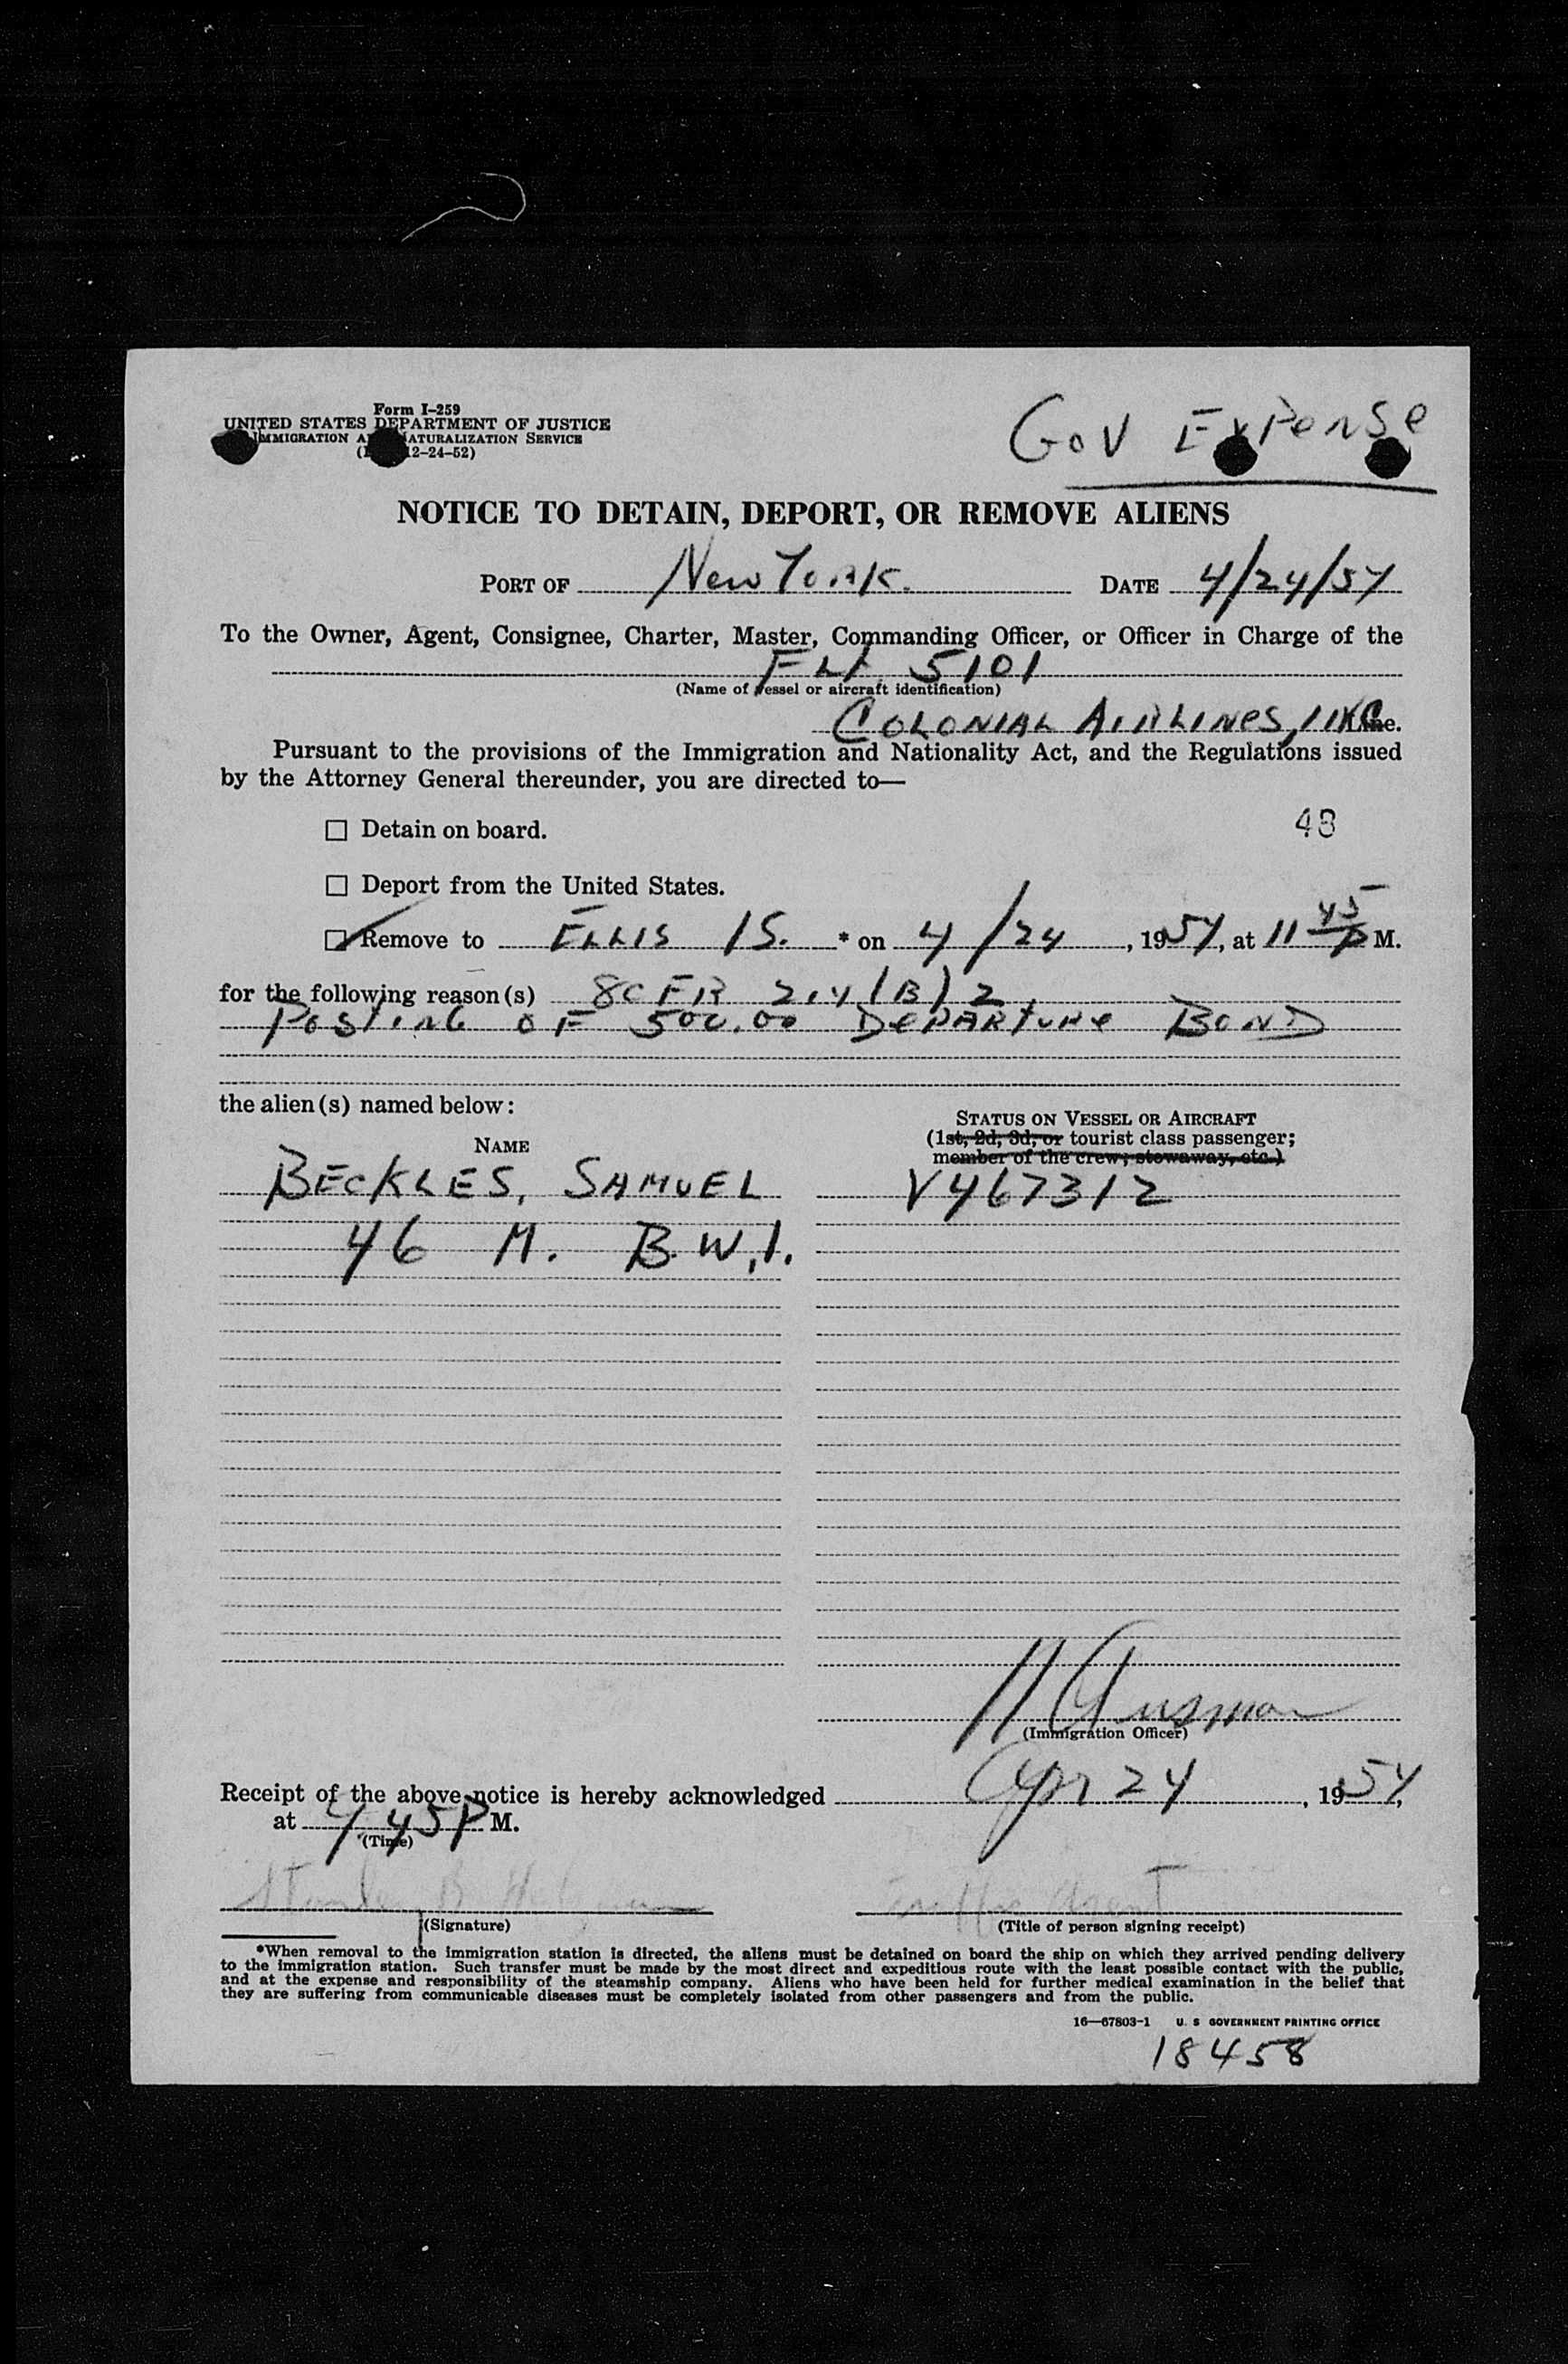 Form I-259
UNITED STATES DEPARTMENT OF JUSTICE
IMMIGRATION A NATURALIZATION SERVICE
( 12-24-52)
GOV EXPENSE
NOTICE TO DETAIN, DEPORT, OR REMOVE ALIENS
PORT OF New York. DATE 4/24/54
To the Owner, Agent, Consignee, Charter, Master, Commanding Officer, or Officer in Charge of the
FLT 5101
(Name of vessel or aircraft identification)
COLONIAL AIRLINES, INC Line.
Pursuant to the provisions of the Immigration and Nationality Act, and the Regulations issued
by the Attorney General thereunder, you are directed to—
☐ Detain on board.
48
☐ Deport from the United States.
☑ Remove to ELLIS IS. * on 4/24, 1954, at 11 45 P M.
for the following reason(s) 8CFR 214(B)2,
POSTING OF 500.00 DEPARTURE BOND
the alien(s) named below:
NAME
STATUS ON VESSEL OR AIRCRAFT
(1st, 2d, 3d, or tourist class passenger;
member of the crew; stowaway, etc.)
BECKLES, SAMUEL V467312
46 M. B.W.I.
(Immigration Officer)
Receipt of the above notice is hereby acknowledged Apr 24, 1954,
at 4 45 P M.
(Time)
Traffic Agent
(Signature)
(Title of person signing receipt)
*When removal to the immigration station is directed, the aliens must be detained on board the ship on which they arrived pending delivery
to the immigration station. Such transfer must be made by the most direct and expeditious route with the least possible contact with the public,
and at the expense and responsibility of the steamship company. Aliens who have been held for further medical examination in the belief that
they are suffering from communicable diseases must be completely isolated from other passengers and from the public.
16—67803-1 U. S GOVERNMENT PRINTING OFFICE
18458